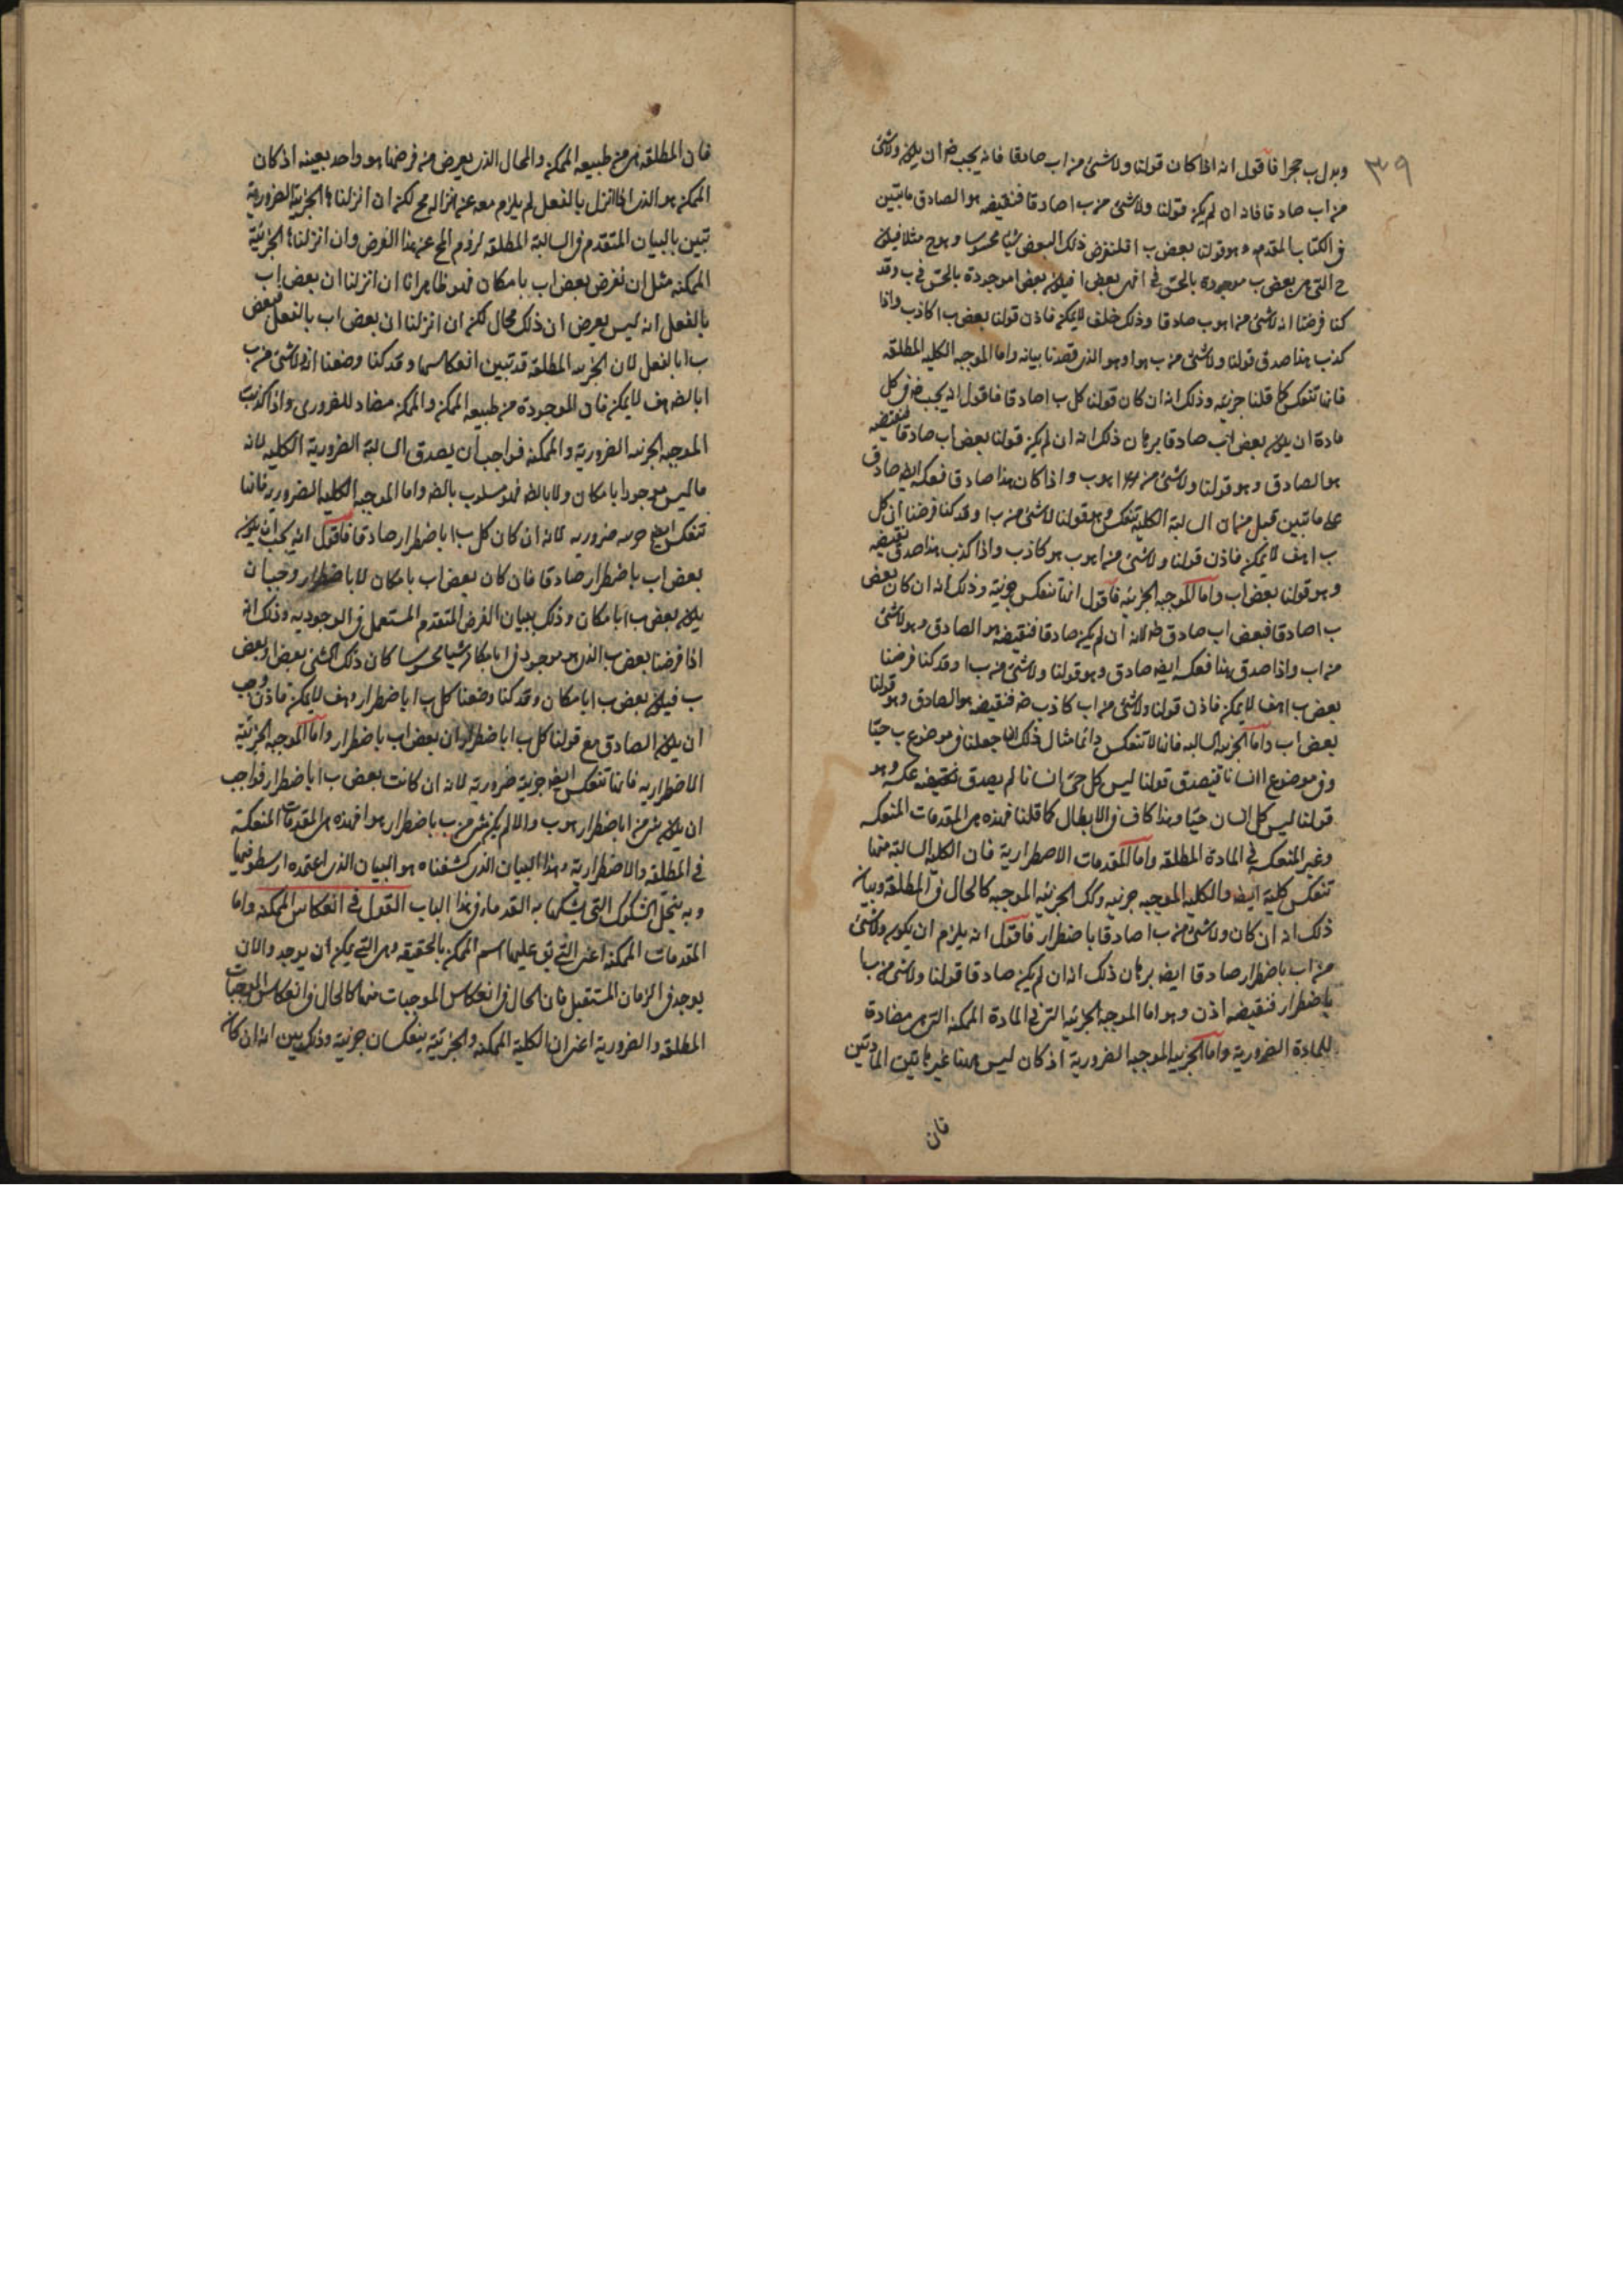 ٣٩
وبدل ب حجرا فاقول انه اذا كان قولنا ولا شئ من اب صادقا فانه يجب ضه ان يكون ولا شئ
من اب صادقا فاد ان لم يكن قولنا ولا شئ من ب ا صادقا فنقيضه هو الصادق ما تبين
فى الكتاب المقدم وهو قولنا بعض ب ا فلنفرض ذلك البعض شيئا محسوسا وهو ح مثلا فيكون
ح التى هى بعض ب موجودة بالحس فى ا فهى بعض ا فيكون بعض ا موجودة بالحس فى ب وقد
كنا فرضنا انه لا شئ من ا هو ب صادقا وذلك خلف لا يمكن فاذن قولنا بعض ب ا كاذب واذا
كذب هذا صدق قولنا ولا شئ من ب هو ا وهو الذى قصدنا بيانه واما الموجبه الكليه المطلقه
فانها تنعكس كما قلنا جزئيه وذلك انه ان كان قولنا كل ب ا صادقا فاقول انه يجب ضه فى كل
مادة ان يكون بعض اب صادقا برهان ذلك انه ان لم يكن قولنا بعض اب صادقا فنقيضه
هو الصادق وهو قولنا ولا شئ من ا هو ب واذا كان هذا صادقا فعكسه ايضا صادق
على ما تبين قبل من ان السالبة الكلية تنعكس وهو قولنا لا شئ من ب ا وقد كنا فرضنا ان كل
ب ا هف لا يمكن فاذن قولنا ولا شئ من ا هو ب هو كاذب واذا كذب هذا صدق نقيضه
وهو قولنا بعض اب واما الموجبه الجزئيه فاقول انها تنعكس جزئية وذلك انه ان كان بعض
ب ا صادقا فبعض اب صادق ضه لانه ان لم يكن صادقا فنقيضه هو الصادق وهو لا شئ
من اب واذا صدق هذا فعكسه ايضه صادق وهو قولنا ولا شئ من ب ا وقد كنا فرضنا
بعض ب ا هف لا يمكن فاذن قولنا ولا شئ من اب كاذب ضه فنقيضه هو الصادق وهو قولنا
بعض اب واما الجزئية السالبه فانها لا تنعكس دائما مثال ذلك انا جعلنا فى موضوع ب حيّا
وفى موضوع ا انسانا فيصدق قولنا ليس كل حىّ انسانا لم يصدق عكسه وهو
قولنا ليس كل انسان حيّا وهذا كاف فى الابطال كما قلنا فهذه هى المقدمات المنعكسه
وغير المنعكسه فى المادة المطلقه واما المقدمات الاضطرارية فان الكلية السالبة منها
تنعكس كلية ايضه والكليه الموجبه جزئيه وكك الجزئيه الموجبه كالحال فى المطلقه وبيان
ذلك انه ان كان ولا شئ من ب ا صادقا باضطرار فاقول انه يلزم ان يكون ولا شئ
من اب باضطرار صادقا ايضه برهان ذلك انه ان لم يكن صادقا قولنا ولا شئ من ب ا
باضطرار فنقيضه اذن وهو اما الموجبه الجزئيه التى فى المادة الممكنه التى هى مضادة
للمادة الضرورية واما الجزئيه الموجبه الضرورية اذ كان ليس ههنا غير هاتين المادتين
فان
فان المطلقه هى من طبيعه الممكن والمحال الذى يعرض من فرضها هو واحد بعينه اذ كان
الممكن هو الذى اذا انزل بالفعل لم يلزم معه عن انزاله مح لكنه ان انزلناها الجزئية الضرورية
تبين بالبيان المتقدم فى السالبة المطلقه لزوم المح عن هذا الفرض وان انزلناها الجزئيّة
الممكنه مثل ان نفرض بعض اب بامكان فهو ظاهر انا ان انزلنا ان بعض اب
بالفعل انه ليس يعرض ان ذلك محال لكن ان انزلنا ان بعض اب بالفعل فبعض
ب ا بالفعل لان الجزئيه المطلقة قد تبين انعكاسها وقد كنا وضعنا انه ولا شئ من ب
ا بالضه هف لا يمكن فان الموجودة من طبيعه الممكن والممكن مضاد للضرورى واذا كذبت
الموجبه الجزئيه الضرورية والممكنه فواجب ان يصدق السالبة الضرورية الكليه لانه
ما ليس موجودا بامكان ولا بالضه فهو مسلوب بالضه واما الموجبه الكليه الضروريه فانها
تنعكس ايضه جزئيه ضروريه لانه ان كان كل ب ا باضطرار صادقا فاقول انه يجب ان يكون
بعض اب باضطرار صادقا فان كان بعض اب بامكان لا باضطرار وجب ان
يكون بعض ب ا بامكان وذلك ببيان الفرض المتقدم المستعمل فى الوجوديه وذلك انه
اذا فرضنا بعض ب الذى هو موجود فى ا بامكان شيئا محسوسا كان ذلك الشئ بعض ا وبعض
ب فيكون بعض ب ا بامكان وقد كنا وضعنا كل ب ا باضطرار وهف لا يمكن فاذن وجب
ان يكون الصادق مع قولنا كل ب ا باضطرار ان بعض اب باضطرار واما الموجبه الجزئيّه
الاضطراريه فانها تنعكس ايضه جزئية ضرورية لانه ان كانت بعض ب ا باضطرار فواجب
ان يكون شئ من ا باضطرار هو ب والا لم يكن شئ من ب باضطرار هو ا فهذه هى المقدمات المنعكسة
فى المطلقه والاضطرارية وهذا البيان الذى كشفناه هو البيان الذى اعتمده ارسطو فيها
وبه ينحل الشكوك التى يشككها به القدما فى هذا الباب القول فى انعكاس الممكنه واما
المقدمات الممكنه اعنى التى يق عليها اسم الممكن بالحقيقه وهى التى يمكن ان يوجد والا
يوجد فى الزمان المستقبل فان الحال فى انعكاس الموجبات منها كالحال فى انعكاس الموجبات
المطلقه والضرورية اعنى ان الكلية الممكنه والجزئية ينعكسان جزئية وذلك بين انه ان كان